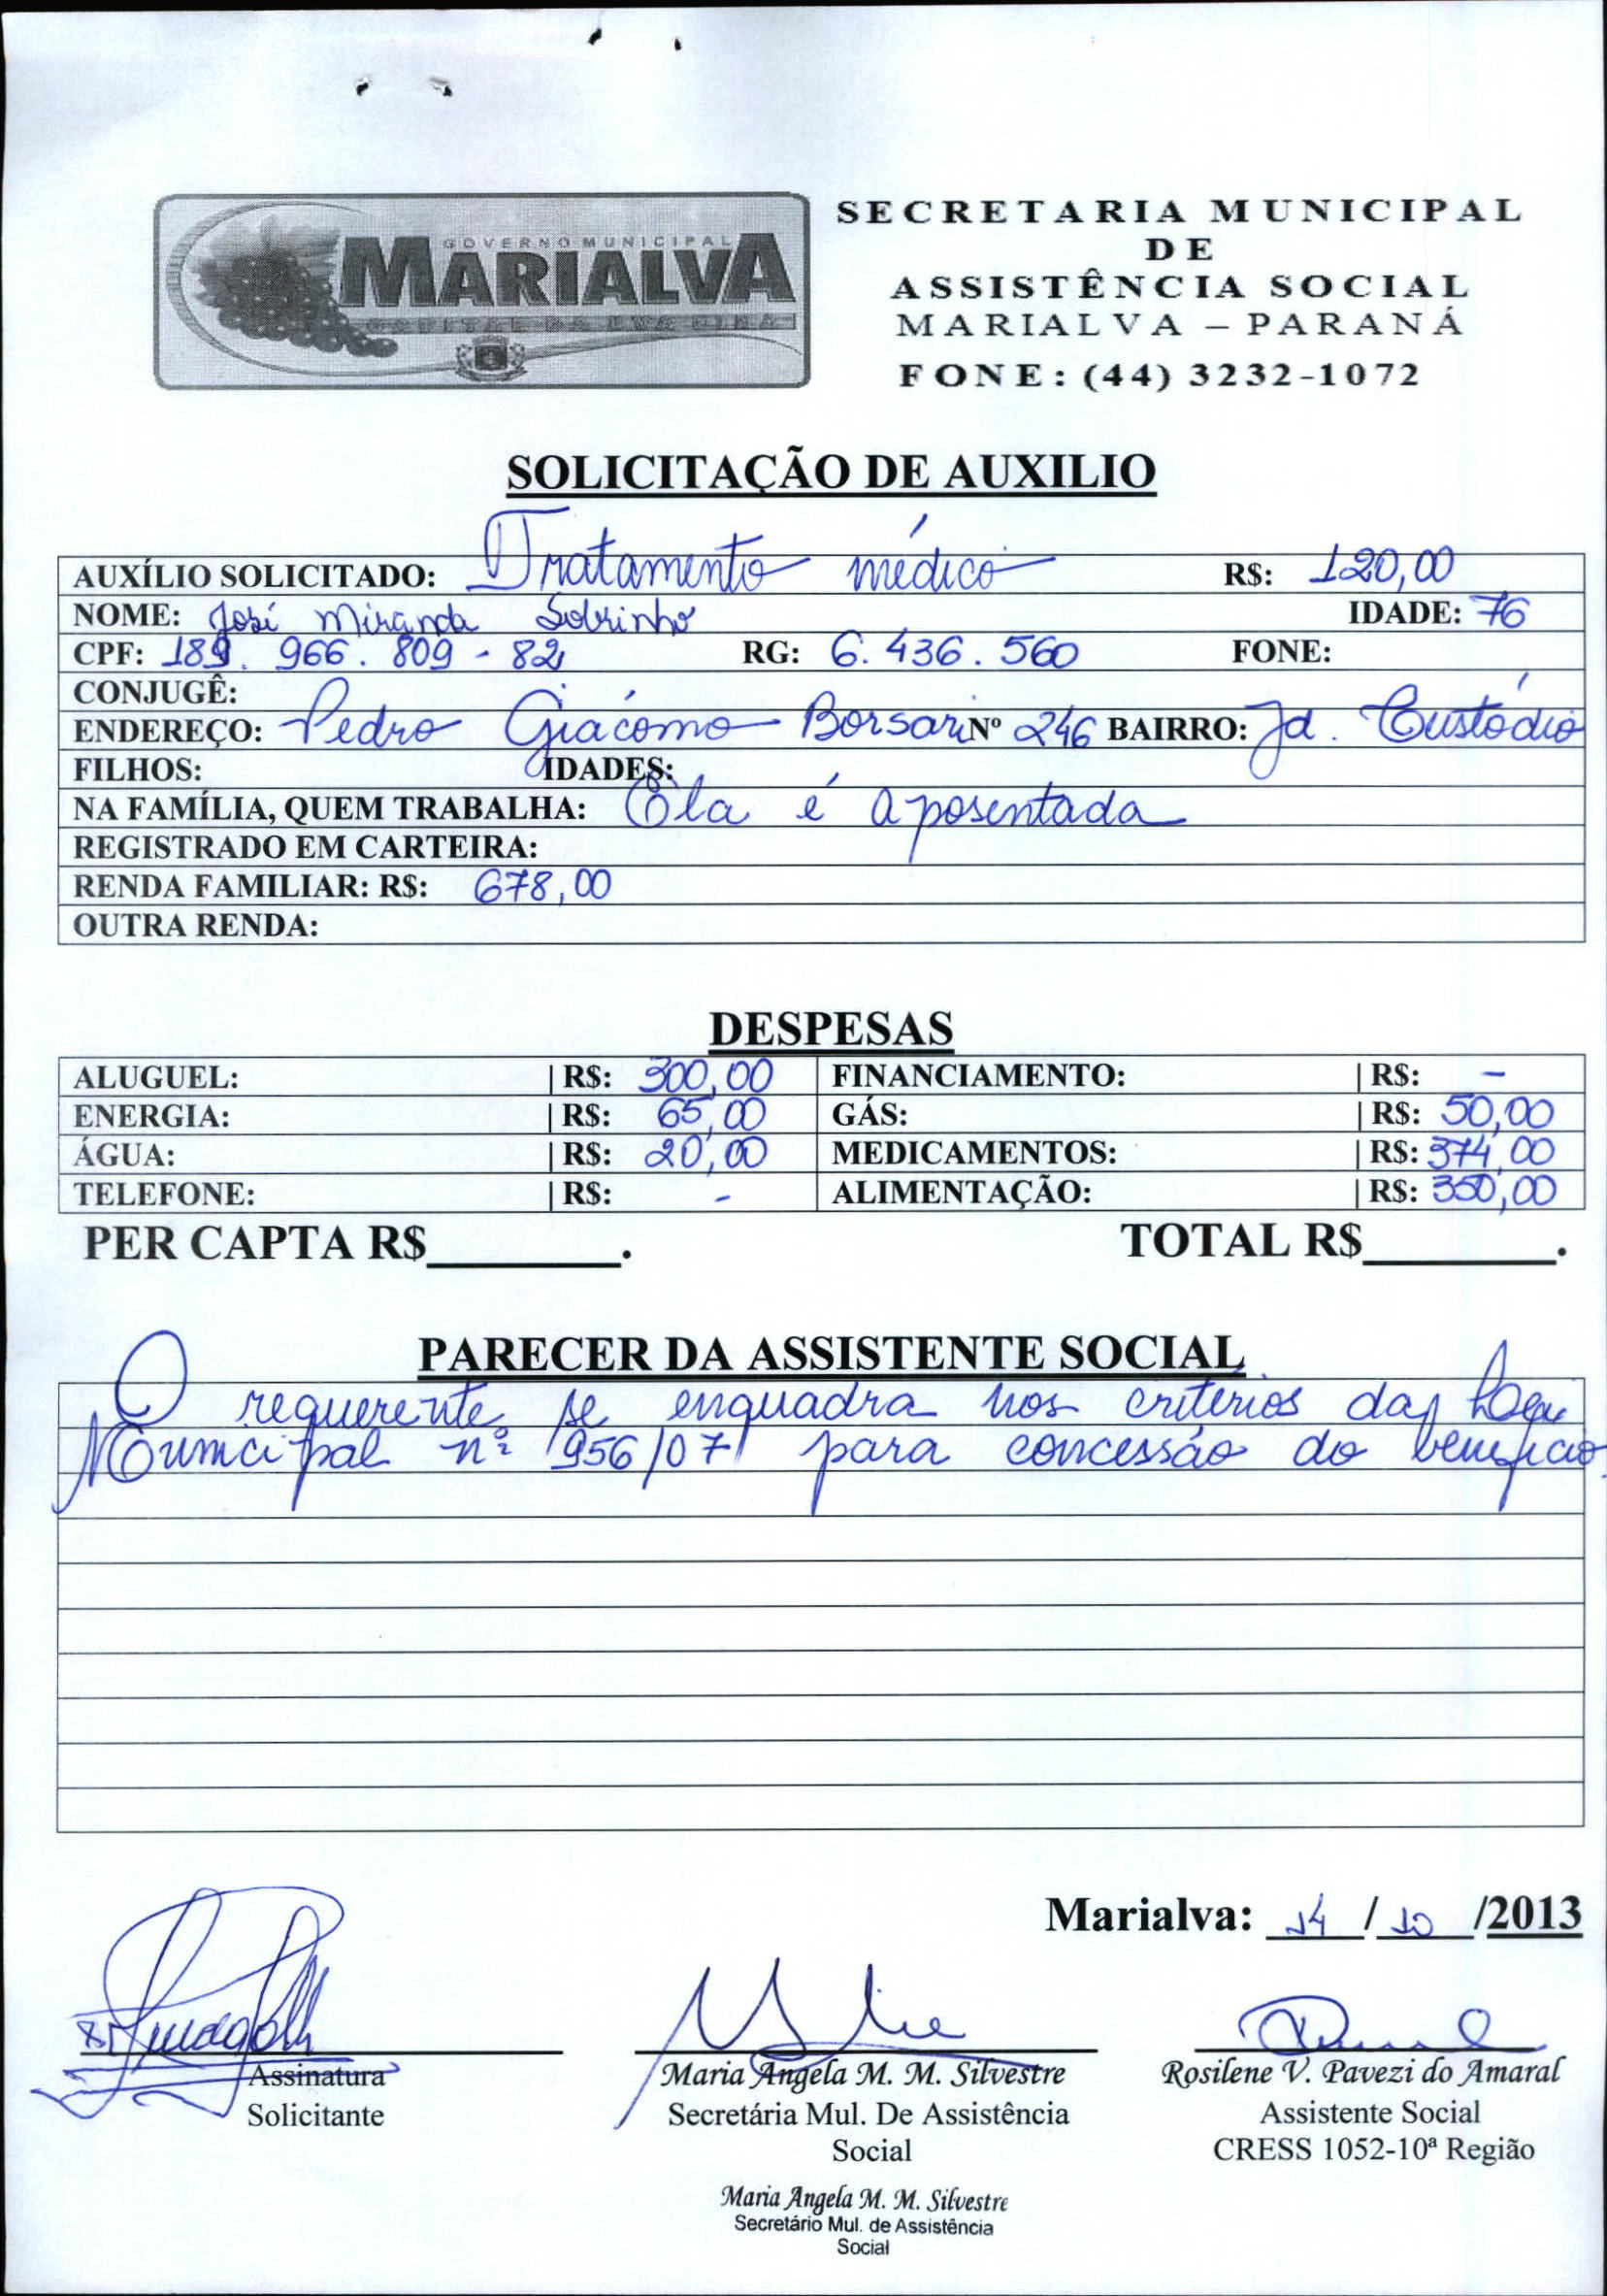 GOVERNO MUNICIPAL
MARIALVA
CAPITAL DA UVA FINA
SECRETARIA MUNICIPAL
DE
ASSISTÊNCIA SOCIAL
MARIALVA – PARANÁ
FONE: (44) 3232-1072
SOLICITAÇÃO DE AUXILIO
AUXÍLIO SOLICITADO: Tratamento médico R$: 120,00
NOME: José Miranda Sobrinho IDADE: 76
CPF: 189.966.809-82 RG: 6.436.560 FONE:
CONJUGÊ:
ENDEREÇO: Pedro Giácomo Borsari Nº 246 BAIRRO: Jd. Custódio
FILHOS: IDADES:
NA FAMÍLIA, QUEM TRABALHA: Ela é aposentada
REGISTRADO EM CARTEIRA:
RENDA FAMILIAR: R$: 678,00
OUTRA RENDA:
DESPESAS
ALUGUEL: | R$: 300,00 FINANCIAMENTO: | R$: -
ENERGIA: | R$: 65,00 GÁS: | R$: 50,00
ÁGUA: | R$: 20,00 MEDICAMENTOS: | R$: 374,00
TELEFONE: | R$: - ALIMENTAÇÃO: | R$: 350,00
PER CAPTA R$________. TOTAL R$________.
PARECER DA ASSISTENTE SOCIAL
O requerente se enquadra nos critérios da Lei
Municipal nº 956/07 para concessão do benefício.
Marialva: 14/10/2013
Assinatura
Solicitante
Maria Angela M. M. Silvestre
Secretária Mul. De Assistência
Social
Maria Angela M. M. Silvestre
Secretário Mul. de Assistência
Social
Rosilene V. Pavezi do Amaral
Assistente Social
CRESS 1052-10ª Região